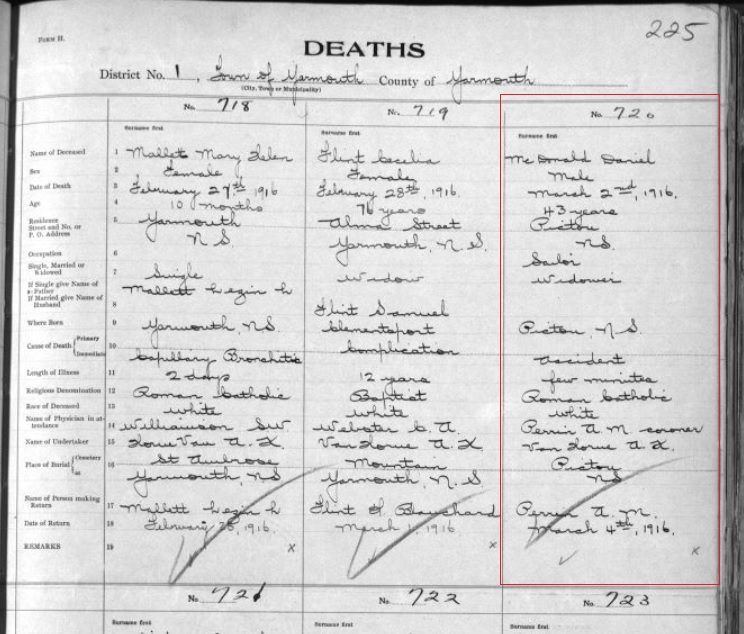 225
FORM H.
DEATHS
District No. 1, Town of Yarmouth County of Yarmouth
(City, Town or Municipality)
No. 718 No. 719 No. 720
Surname first Surname first Surname first
Name of Deceased 1 Mallett Mary Helen Flint Cecelia McDonald Daniel
Sex 2 Female Female Male
Date of Death 3 February 27th 1916 February 28th, 1916. March 2nd, 1916.
Age 4 10 months 76 years 43 years
Residence Street and No. or P. O. Address 5 Yarmouth Alma Street Pictou
N S Yarmouth, N. S. NS.
Occupation 6 Sailor
Single, Married or Widowed 7 Single Widow Widower
If Single give Name of Father Mallett h
If Married give Name of Husband 8 Flint Samuel
Where Born 9 Yarmouth, NS. Clementsport Pictou, N. S.
Cause of Death Primary Immediate 10 Capillary Bronchitis Complication Accident
Length of Illness 11 2 days 12 years few minutes
Religious Denomination 12 Roman Catholic Baptist Roman Catholic
Race of Deceased 13 white white white
Name of Physician in attendance 14 Williamson SW Webster C. A. Perrin A M. coroner
Name of Undertaker 15 Van A. Van Horne A. K. Van Horne A. K.
Place of Burial Cemetery at 16 St Ambrose Mountain Pictou
Yarmouth, NS Yarmouth, N. S NS
Name of Person making Return 17 Mallett h Flint Blanchard Perrin A. M.
Date of Return 18 February 28, 1916. March 1, 1916 March 4th, 1916.
REMARKS 19 x x x
No. 721 No. 722 No. 723
Surname first Surname first Surname first